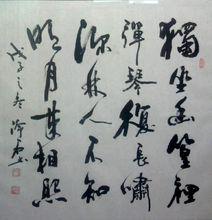 獨坐幽篁裡
彈琴復長嘯
深林人不知
明月来相照
戊子之春